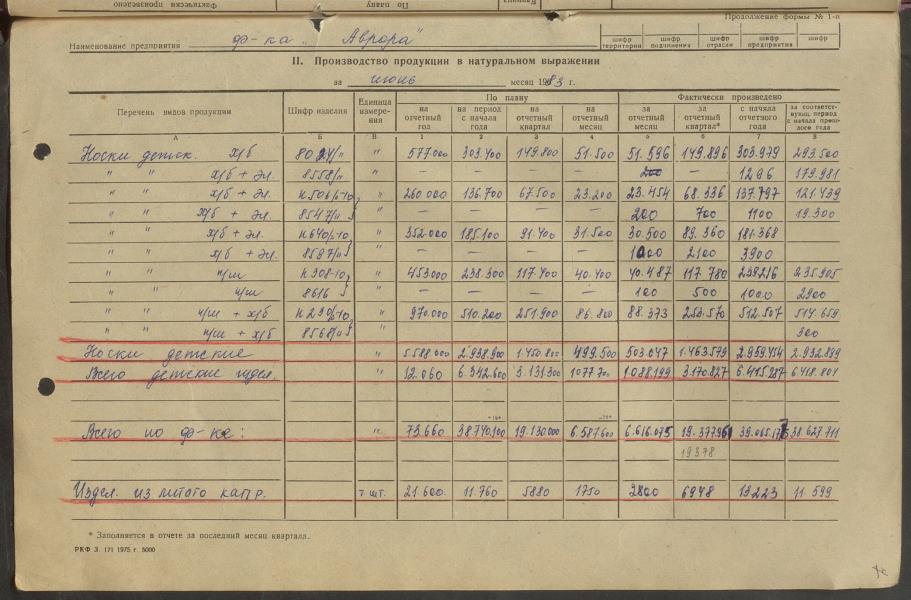 Фактически произведено По плану Единица
Продолжение формы № 1-п
Наименование предприятия ф-ка „Аврора"
шифр территории шифр подчинения шифр отрасли шифр предприятия шифр
II. Производство продукции в натуральном выражении
за июнь месяц 1983 г.
Перечень видов продукции Шифр изделия Единица измерения По плану Фактически произведено
на отчетный год на период с начала года на отчетный квартал на отчетный месяц за отчетный месяц за отчетный квартал* с начала отчетного года за соответствующ. период с начала прошлого года
А Б В 1 2 3 4 5 6 7 8
Носки детск. х/б " 577000 303.400 149.800 51.500 51.596 149.896 303.979 293.500
" " х/б + эл. 8558/н " — — — — 200 — 1296 179.981
" " х/б + эл. " 260000 136.700 67.500 23.200 23.454 68.336 137.797 121.439
" " х/б + эл. 8547/н " — — — — 200 700 1100 19.300
" " х/б + эл. " 352.000 185.100 91.400 31.500 30.500 89.360 181.368
" " х/б + эл. 8597/н " — — — 1000 2100 3900
" " п/ш " 453000 238.300 117.400 40.400 40.487 117.780 238216 235.905
" " п/ш 8616 " — — — — 100 500 1000 2900
" " п/ш + х/б " 970.000 510.200 251.900 86.800 88.373 253.570 512.507 514.659
" " п/ш + х/б 8568/н " 300
Носки детские " 5.588.000 2.938.900 1.450.800 499.500 503.047 1.463.579 2.959.454 2.932.889
Всего детские издел. " 12.060 6.342.600 3.131.300 1077700 1.088.199 3.170.827 6.415.287 6.418.801
Всего по ф-ке: " 73.660 38.740.100 19.130000 6.587.600 6.616.075 19.377.961 38.627.711
19378
Издел. из литого капр. т шт. 21.600 11.760 5880 1750 2800 6948 13223 11.599
* Заполняется в отчете за последний месяц квартала.
РКФ З. 171 1975 г. 5000